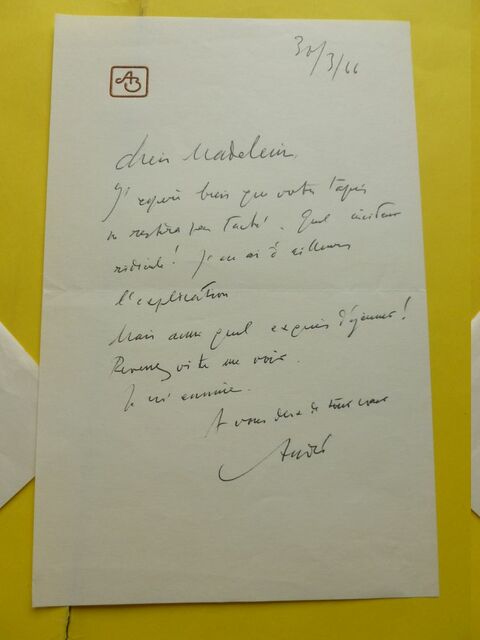 AB
30/3/66
Chère Madeleine,
J'espère bien que votre tapis
ne restera pas taché. Quel incident
ridicule! J'en ai d'ailleurs
l'explication
Mais aussi quel exquis déjeuner!
Revenez vite me voir.
Je m'ennuie.
A vous deux de tout cœur
André